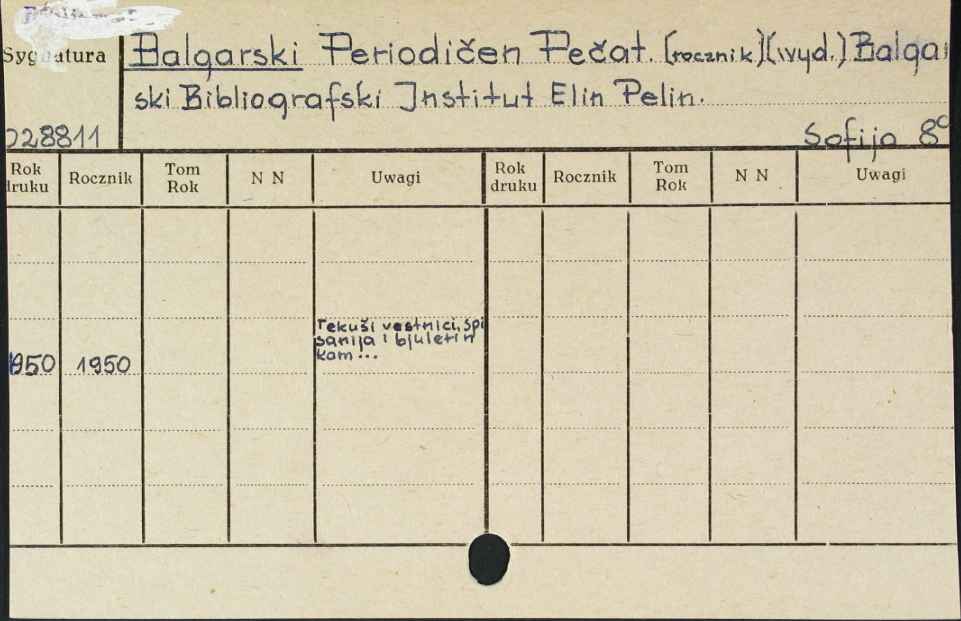 Sygnatura
Balgarski Periodičen Pečat. (rocznik)(wyd.) Balgar
ski Bibliografski Institut Elin Pelin.
228811
Sofija 8°
Rok druku Rocznik Tom Rok N N Uwagi Rok druku Rocznik Tom Rok N N Uwagi
Tekuši vestnici, spi
sanija i bjuletin
kam...
1950 1950